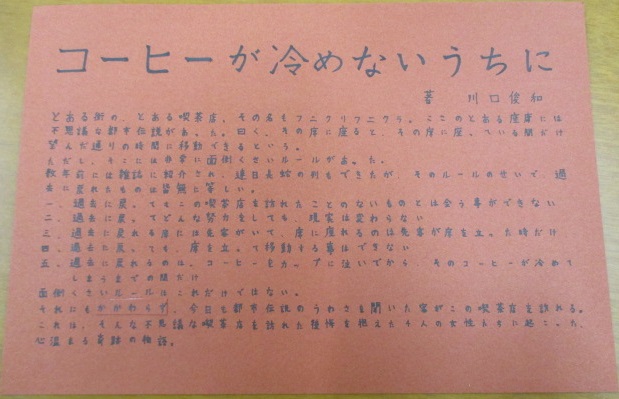 コーヒーが冷めないうちに
著　川口俊和
とある街の、とある喫茶店、その名もフニクリフニクラ。ここのとある座席には
不思議な都市伝説があった。曰く、その席に座ると、その席に座っている間だけ
望んだ通りの時間に移動できるという。
ただし、そこには非常に面倒くさいルールがあった。
数年前には雑誌に紹介され、連日長蛇の列もできたが、そのルールのせいで、過
去に戻れたものは皆無に等しい。
一、過去に戻ってもこの喫茶店を訪れたことのないものとは会う事ができない
二、過去に戻ってどんな努力をしても、現実は変わらない
三、過去に戻れる席には先客がいて、席に座れるのは先客が席を立った時だけ
四、過去に戻っても、席を立って移動する事はできない
五、過去に戻れるのは、コーヒーをカップに注いでから　そのコーヒーが冷めて
しまうまでの間だけ
面倒くさいルールはこれだけではない。
それにもかかわらず、今日も都市伝説のうわさを聞いた客がこの喫茶店を訪れる。
これは、そんな不思議な喫茶店を訪れた後悔を抱えた4人の女性たちに起こった、
心温まる奇跡の物語。